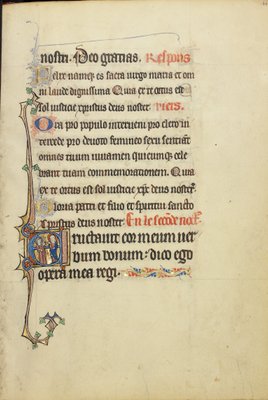 nostri. Deo gratias. Respuns
Felix namqȝ es sacra uirgo maria et om
ni laude dignissima Quia ex te ortus est
sol iusticie xpistus deus noster. Viers.
Ora pro populo interueni pro clero in
tercede pro deuoto femineo sexu sentiant
omnes tuum iuuamen quicumqȝ cele
brant tuam commemorationem. Quia
ex te ortus est sol iusticie xp̄c deus noster.
Gloria patri et filio et spiritui sancto
Xpistus deus noster. En le secōde noct.
Eructauit cor meum uer
bum bonum: dico ego
opera mea regi.